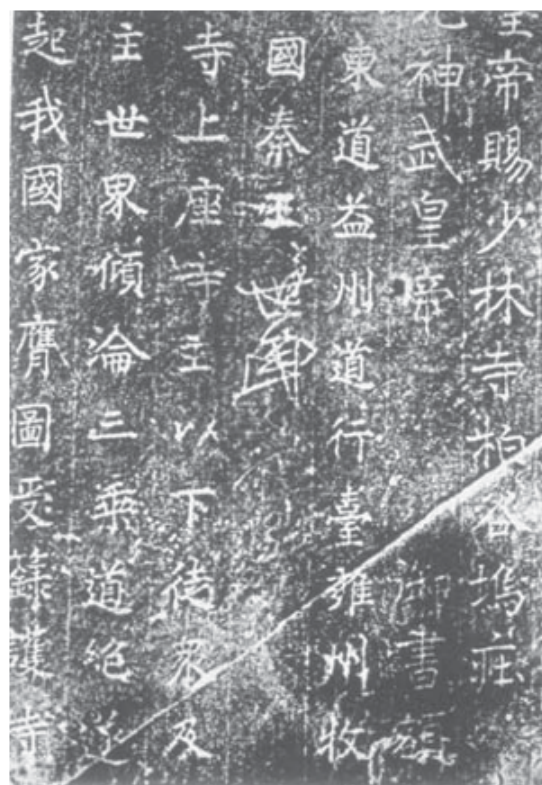 皇帝賜少林寺柏谷塢莊
元神武皇帝 御書碑
東道益州道行臺雍州牧
國秦王世民
寺上座寺主以下徒眾及
主世界傾淪三乘道絕
起我國家膺圖受籙護寺